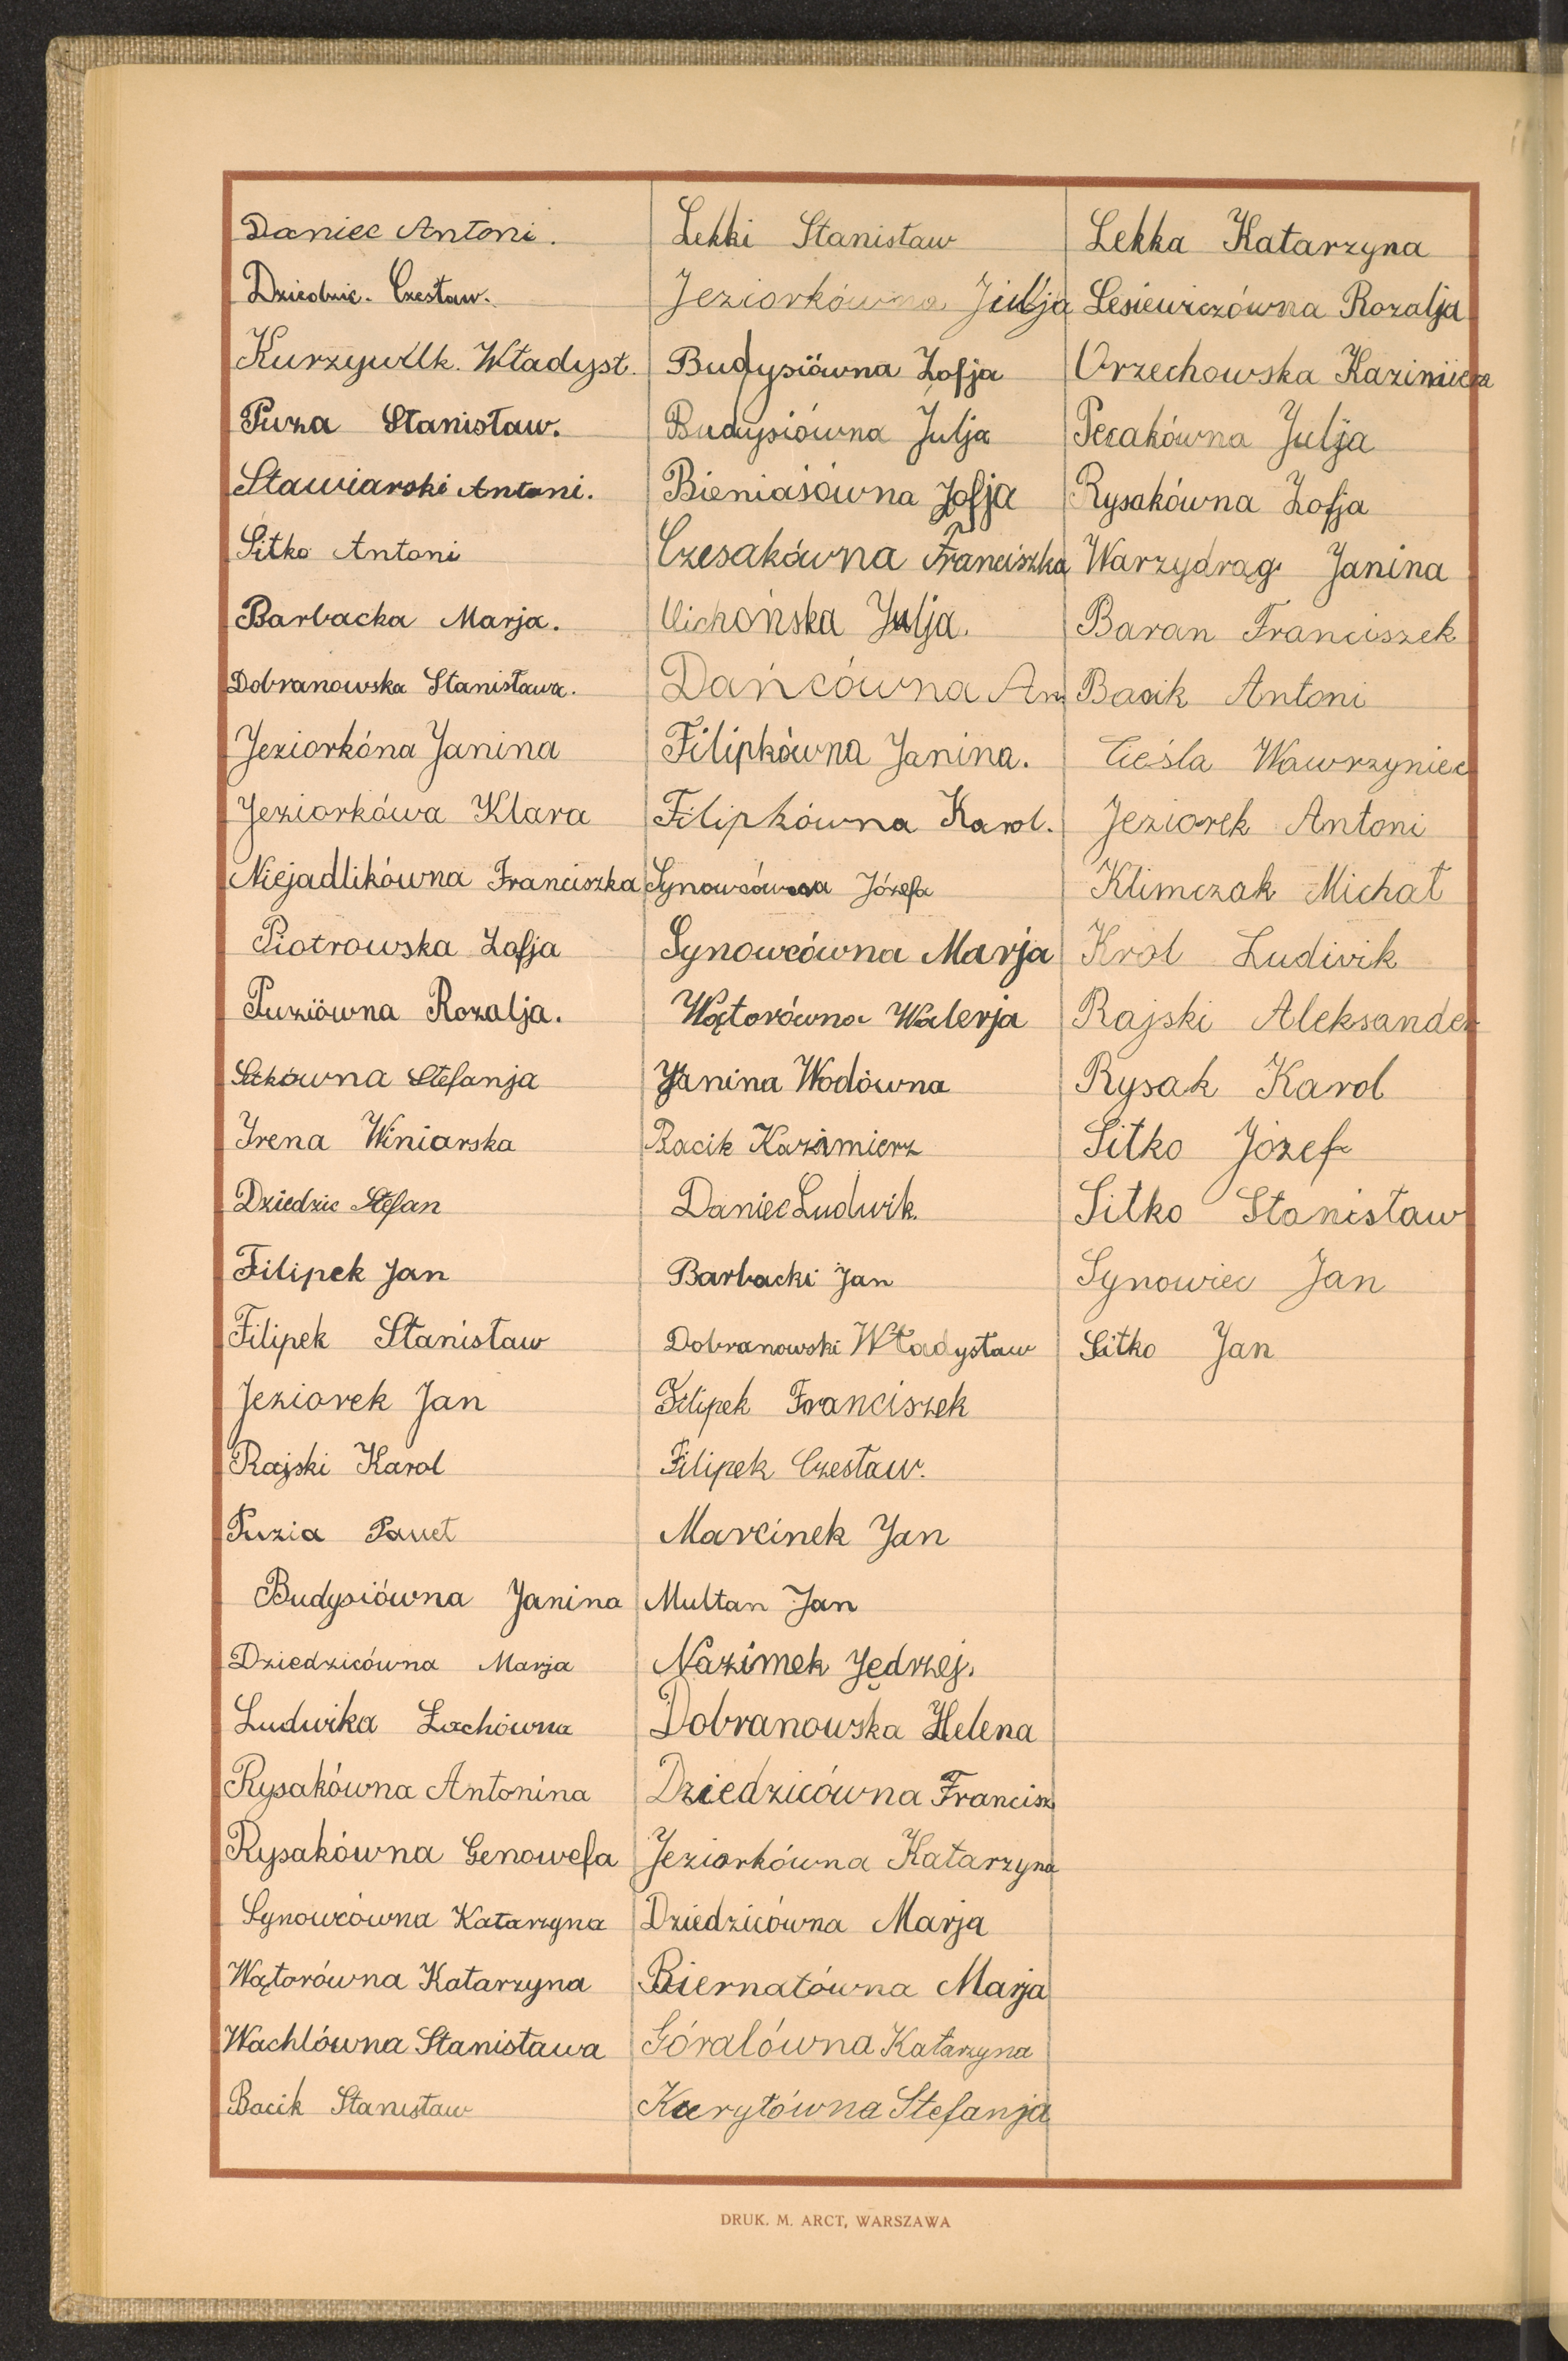 Daniec Antoni.
Dziedzic. Czesław.
Kurzywilk. Władysł.
Puza Stanisław.
Stawiarski Antoni.
Sitko Antoni
Barbacka Marja.
Dobranowska Stanisława.
Jeziorkóna Janina
Jeziorkówa Klara
Niejadlikówna Franciszka
Piotrowska Zofja
Puziówna Rozalja.
Sitkówna Stefanja
Irena Winiarska
Dziedzic Stefan
Filipek Jan
Filipek Stanisław
Jeziorek Jan
Rajski Karol
Puzia Paweł
Budysiówna Janina
Dziedzicówna Marja
Ludwika Lachówna
Rysakówna Antonina
Rysakówna Genowefa
Synowcówna Katarzyna
Wątorówna Katarzyna
Wachlówna Stanisława
Bacik Stanisław
Lekki Stanisław
Jeziorkówna Julja
Budysiówna Zofja
Budysiówna Julja
Bieniasówna Zofja
Czesakówna Franciszka
Cichońska Julja.
Dańcówna An
Filipkówna Janina.
Filipkówna Karol.
Synowcówna Józefa
Synowcówna Marja
Wątorówna Walerja
Janina Wodówna
Bacik Kazimierz
Daniec Ludwik
Barbacki Jan
Dobranowski Władysław
Filipek Franciszek
Filipek Czesław.
Marcinek Jan
Multan Jan
Nazimek Jędrzej.
Dobranowska Helena
Dziedzicówna Francisz
Jeziorkówna Katarzyna
Dziedzicówna Marja
Biernatówna Marja
Góralówna Katarzyna
Kuryłówna Stefanja
Lekka Katarzyna
Lesiewiczówna Rozalja
Orzechowska Kazimiera
Pecakówna Julja
Rysakówna Zofja
Warzydrąg Janina
Baran Franciszek
Bacik Antoni
Cieśla Wawrzyniec
Jeziorek Antoni
Klimczak Michał
Krol Ludwik
Rajski Aleksander
Rysak Karol
Sitko Józef
Sitko Stanisław
Synowiec Jan
Sitko Jan
DRUK. M. ARCT, WARSZAWA